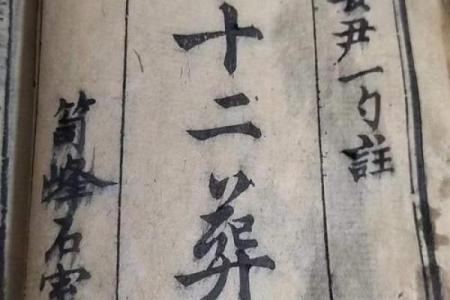 尹一勺註
十二葬
筍峰石室